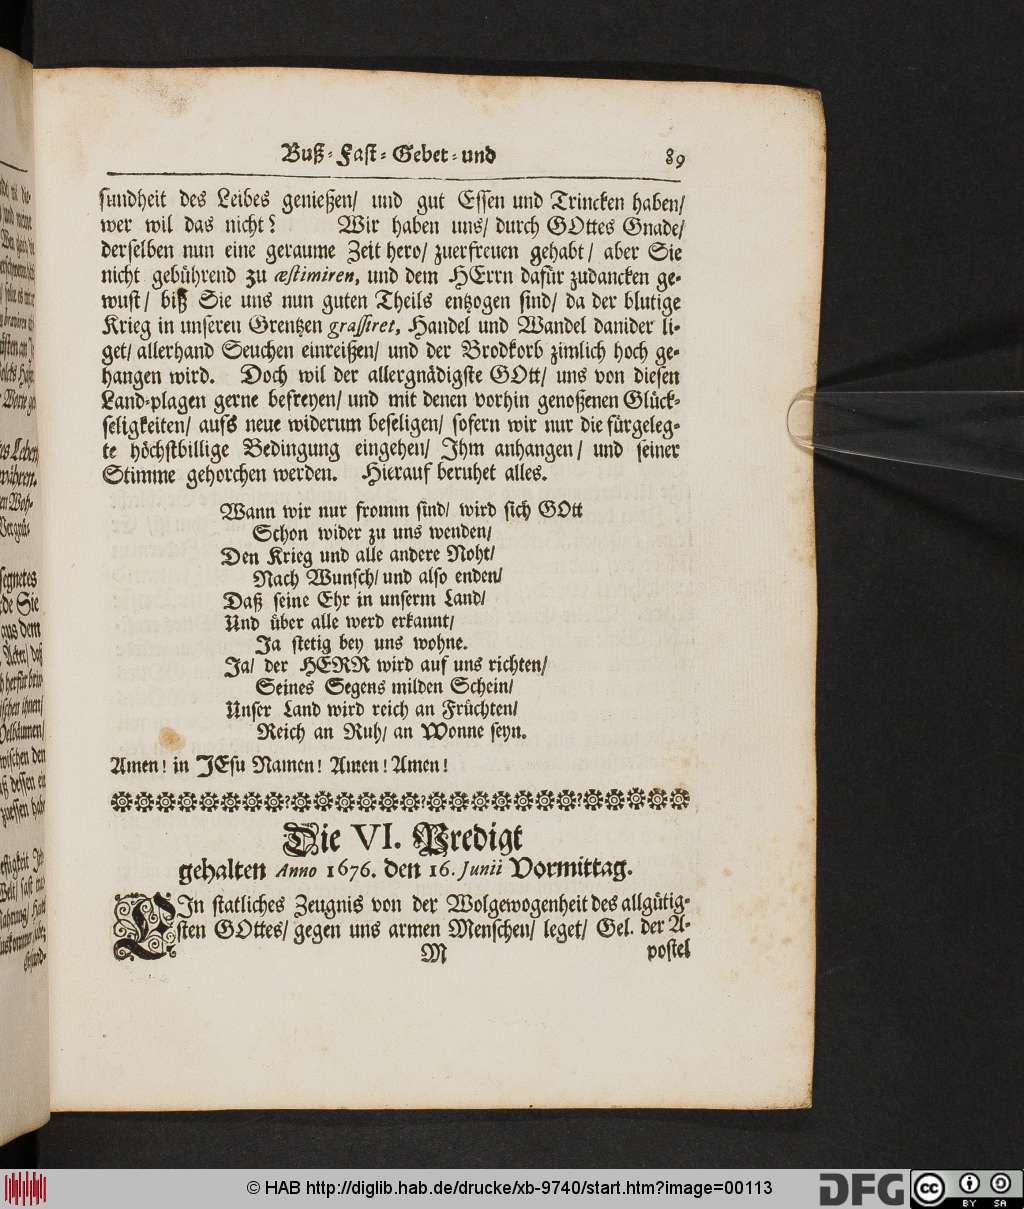 Buß-Fast-Gebet-und 89
sundheit des Leibes genießen/ und gut Essen und Trincken haben/
wer wil das nicht? Wir haben uns/ durch GOttes Gnade/
derselben nun eine geraume Zeit hero/ zuerfreuen gehabt/ aber Sie
nicht gebührend zu æstimiren, und dem HErrn dafür zudancken ge-
wust/ biß Sie uns nun guten Theils entzogen sind/ da der blutige
Krieg in unseren Grentzen grassiret, Handel und Wandel danider li-
get/ allerhand Seuchen einreißen/ und der Brodkorb zimlich hoch ge-
hangen wird. Doch wil der allergnädigste GOtt/ uns von diesen
Land-plagen gerne befreyen/ und mit denen vorhin genoßenen Glück-
seligkeiten/ aufs neue widerum beseligen/ sofern wir nur die fürgeleg-
te höchstbillige Bedingung eingehen/ Ihm anhangen/ und seiner
Stimme gehorchen werden. Hierauf beruhet alles.
Wann wir nur fromm sind/ wird sich GOtt
Schon wider zu uns wenden/
Den Krieg und alle andere Noht/
Nach Wunsch/ und also enden/
Daß seine Ehr in unserm Land/
Und über alle werd erkannt/
Ja stetig bey uns wohne.
Ja/ der HERR wird auf uns richten/
Seines Segens milden Schein/
Unser Land wird reich an Früchten/
Reich an Ruh/ an Wonne seyn.
Amen! in JEsu Namen! Amen! Amen!
Die VI. Predigt
gehalten Anno 1676. den 16. Junii Vormittag.
EIn statliches Zeugnis von der Wolgewogenheit des allgütig-
sten GOttes/ gegen uns armen Menschen/ leget/ Gel. der A-
M postel
© HAB http://diglib.hab.de/drucke/xb-9740/start.htm?image=00113
DFG
cc BY SA